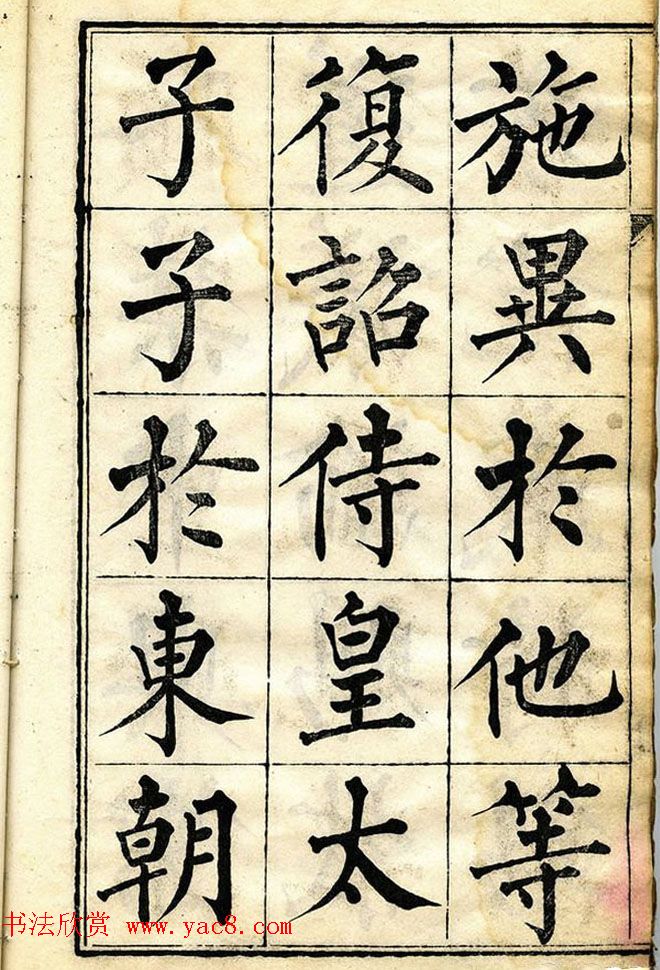 施異於他等
復詔侍皇太
子子於東朝
书法欣赏 www.yac8.com